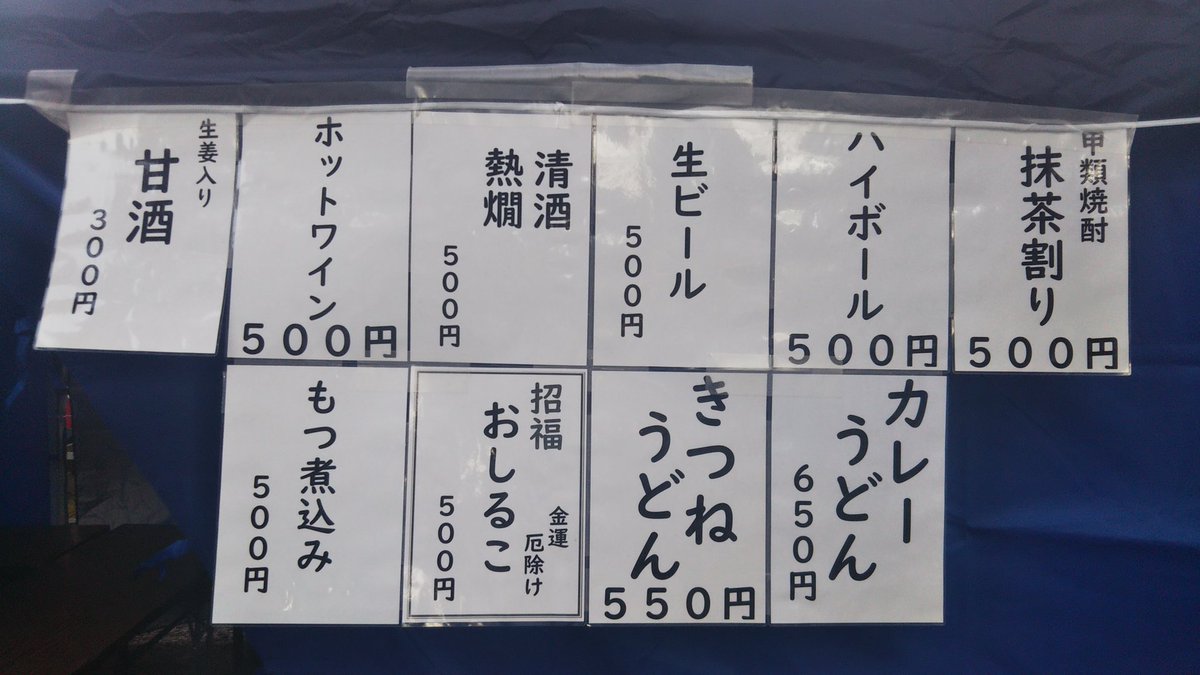 甲類焼酎
抹茶割り
５００円
ハイボール
５００円
生ビール
５００円
清酒
熱燗
５００円
ホットワイン
５００円
生姜入り
甘酒
３００円
カレー
うどん
６５０円
きつね
うどん
５５０円
招福
おしるこ
金運
厄除け
５００円
もつ煮込み
５００円